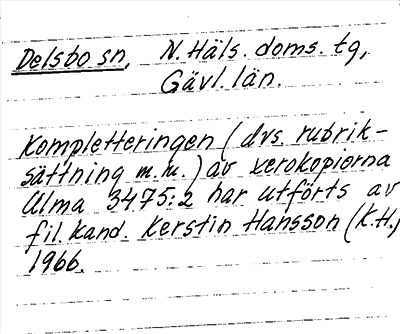 Delsbo sn, N. Häls. doms. tg,
Gävl. län.
Kompletteringen (dvs. rubrik-
sättning m.m.) av xerokopierna
Ulma 3475:2 har utförts av
fil. kand. Kerstin Hansson (K.H.)
1966.